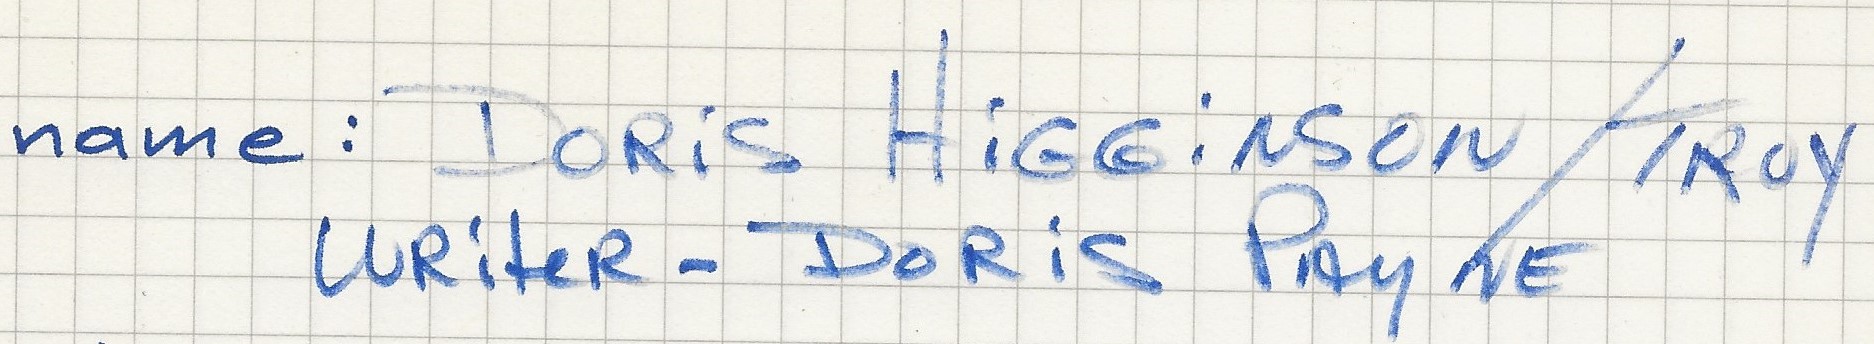 name: DORiS HiGGiNSON/TROY
WRiteR - DORiS PAyNE